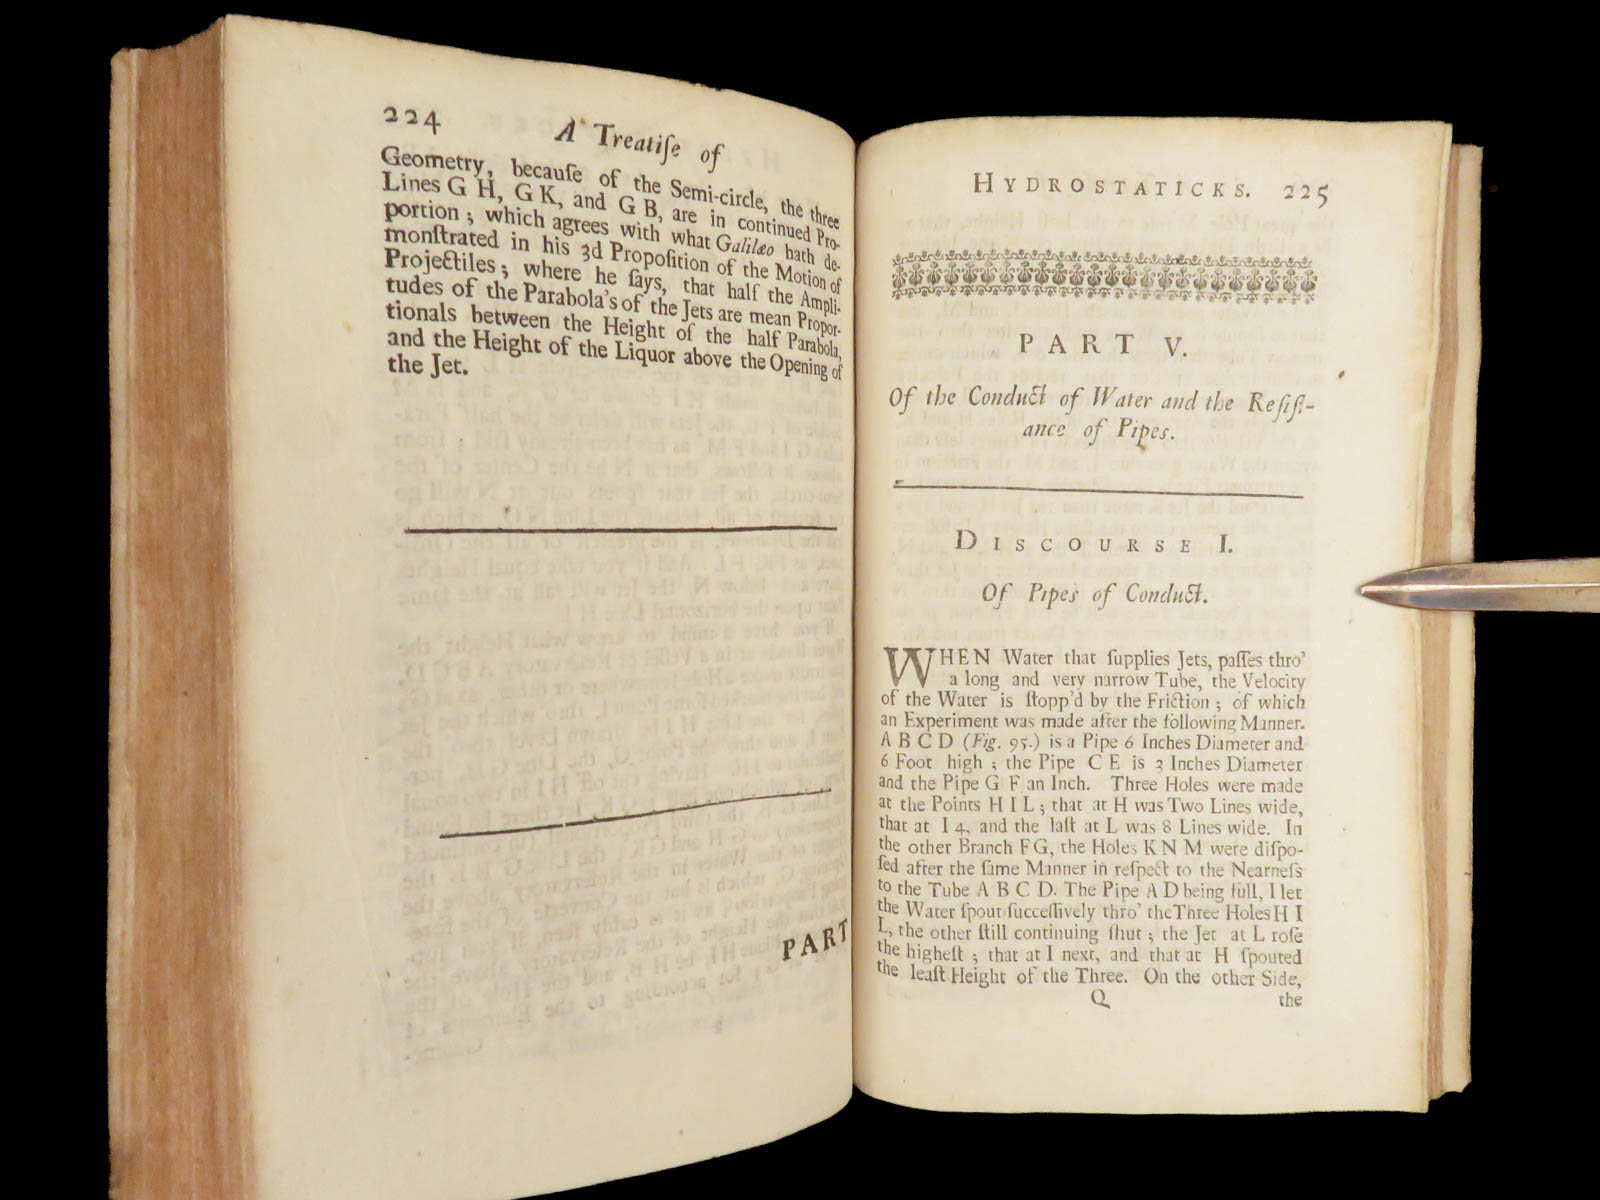 224
A Treatiſe of
Geometry, becauſe of the Semi-circle, the three
Lines G H, G K, and G B, are in continued Pro-
portion ; which agrees with what Galilæo hath de-
monſtrated in his 3d Propoſition of the Motion of
Projectiles ; where he ſays, that half the Ampli-
tudes of the Parabola's of the Jets are mean Propor-
tionals between the Height of the half Parabola,
and the Height of the Liquor above the Opening of
the Jet.
PART
HYDROSTATICKS. 225
PART V.
Of the Conduct of Water and the Reſiſt-
ance of Pipes.
DISCOURSE I.
Of Pipes of Conduct.
WHEN Water that ſupplies Jets, paſſes thro'
a long and very narrow Tube, the Velocity
of the Water is ſtopp'd by the Friction ; of which
an Experiment was made after the following Manner.
A B C D (Fig. 95.) is a Pipe 6 Inches Diameter and
6 Foot high ; the Pipe C E is 3 Inches Diameter
and the Pipe G F an Inch. Three Holes were made
at the Points H I L ; that at H was Two Lines wide,
that at I 4, and the laſt at L was 8 Lines wide. In
the other Branch F G, the Holes K N M were diſpo-
ſed after the ſame Manner in reſpect to the Nearneſs
to the Tube A B C D. The Pipe A D being full, I let
the Water ſpout ſucceſſively thro' the Three Holes H I
L, the other ſtill continuing ſhut ; the Jet at L roſe
the higheſt ; that at I next, and that at H ſpouted
the leaſt Height of the Three. On the other Side,
Q
the